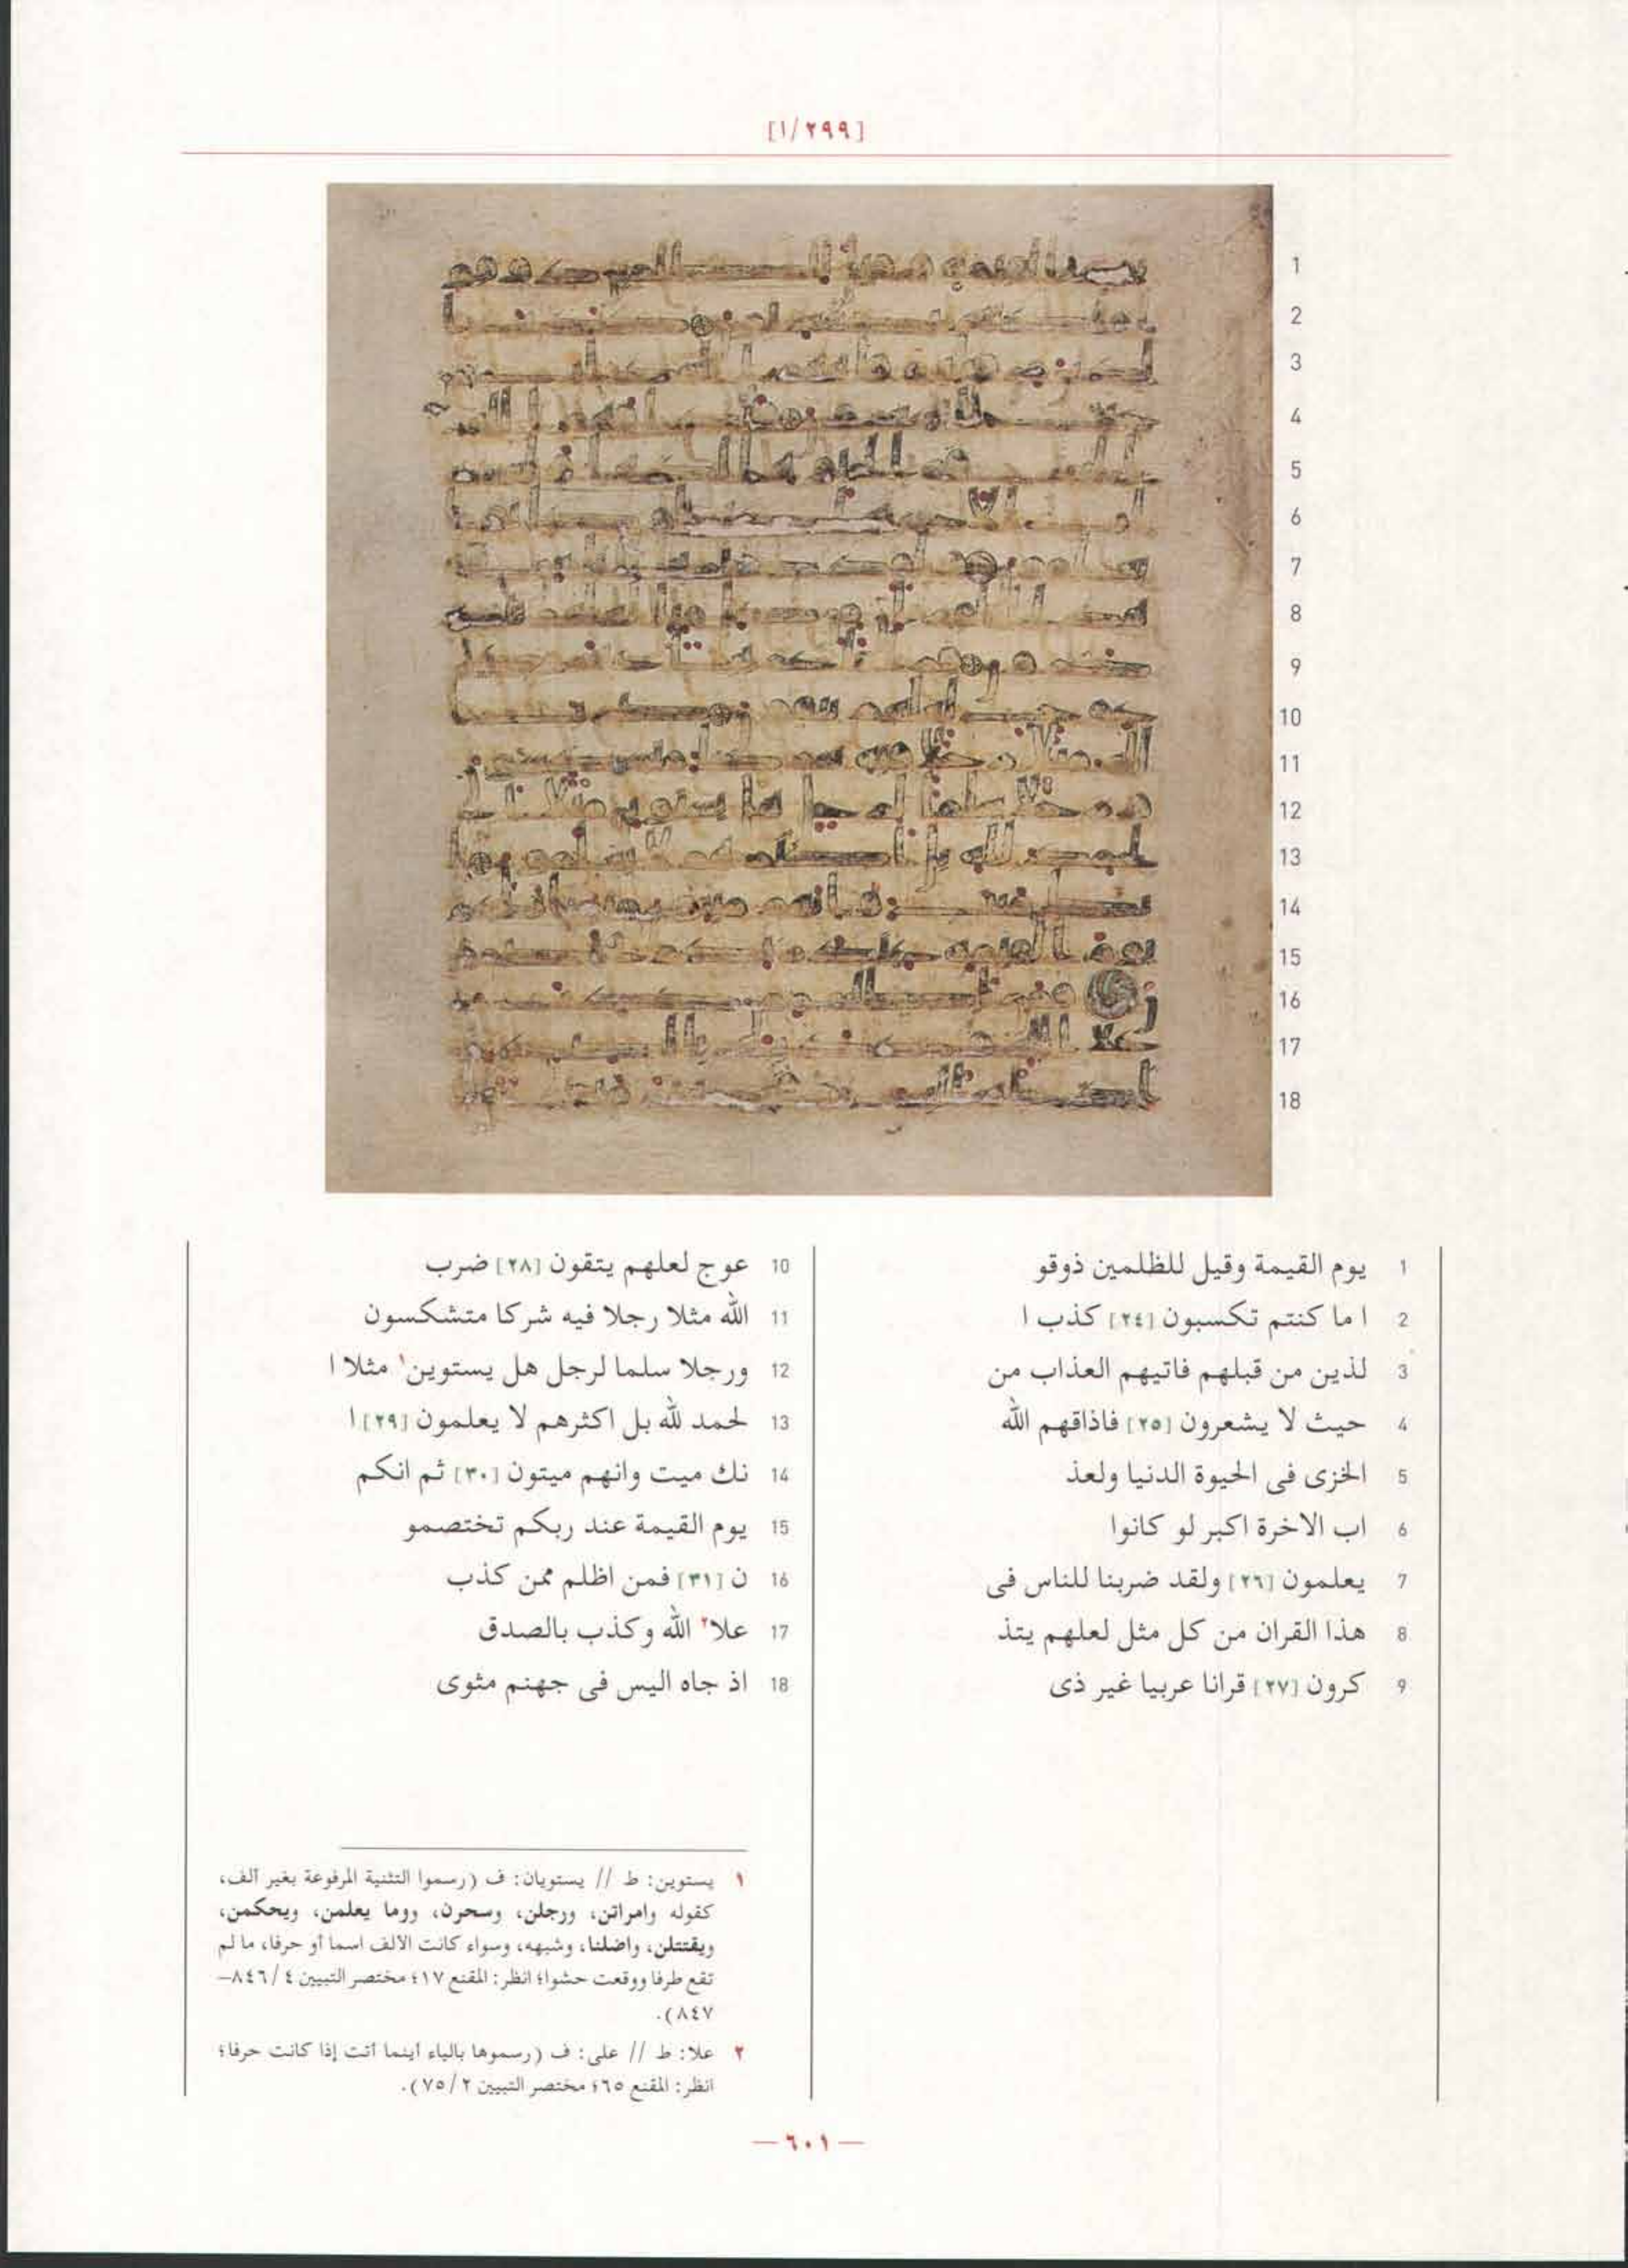 [١/٢٩٩]
1
2
3
4
5
6
7
8
9
10
11
12
13
14
15
16
17
18
1 يوم القيمة وقيل للظلمين ذوقو
2 ا ما كنتم تكسبون [٢٤] كذب ا
3 لذين من قبلهم فاتيهم العذاب من
4 حيث لا يشعرون [٢٥] فاذاقهم الله
5 الخزى فى الحيوة الدنيا ولعذ
6 اب الاخرة اكبر لو كانوا
7 يعلمون [٢٦] ولقد ضربنا للناس فى
8 هذا القران من كل مثل لعلهم يتذ
9 كرون [٢٧] قرانا عربيا غير ذى
10 عوج لعلهم يتقون [٢٨] ضرب
11 الله مثلا رجلا فيه شركا متشكسون
12 ورجلا سلما لرجل هل يستوين١ مثلا ا
13 لحمد لله بل اكثرهم لا يعلمون [٢٩] ا
14 نك ميت وانهم ميتون [٣٠] ثم انكم
15 يوم القيمة عند ربكم تختصمو
16 ن [٣١] فمن اظلم ممن كذب
17 علا٢ الله وكذب بالصدق
18 اذ جاه اليس فى جهنم مثوى
١ يستوين: ط // يستويان: ف (رسموا التثنية المرفوعة بغير ألف،
كقوله وامراتن، ورجلن، وسحرن، ووما يعلمن، ويحكمن،
ويقتتلن، واضلنا، وشبهه، وسواء كانت الألف اسما أو حرفا، ما لم
تقع طرفا ووقعت حشوا؛ انظر: المقنع ١٧؛ مختصر التبيين ٤/٨٤٦–
٨٤٧).
٢ علا: ط // على: ف (رسموها بالياء أينما أتت إذا كانت حرفا؛
انظر: المقنع ٦٥؛ مختصر التبيين ٢/٧٥).
— ٦٠١ —